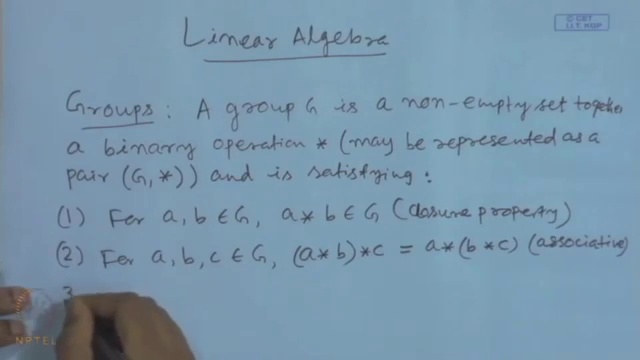 © CET
I.I.T. KGP
Linear Algebra
Groups : A group G is a non-empty set together
a binary operation * (may be represented as a
pair (G, *)) and is satisfying :
(1) For a, b ∈ G, a * b ∈ G (closure property)
(2) For a, b, c ∈ G, (a * b) * c = a * (b * c) (associative)
3
NPTEL